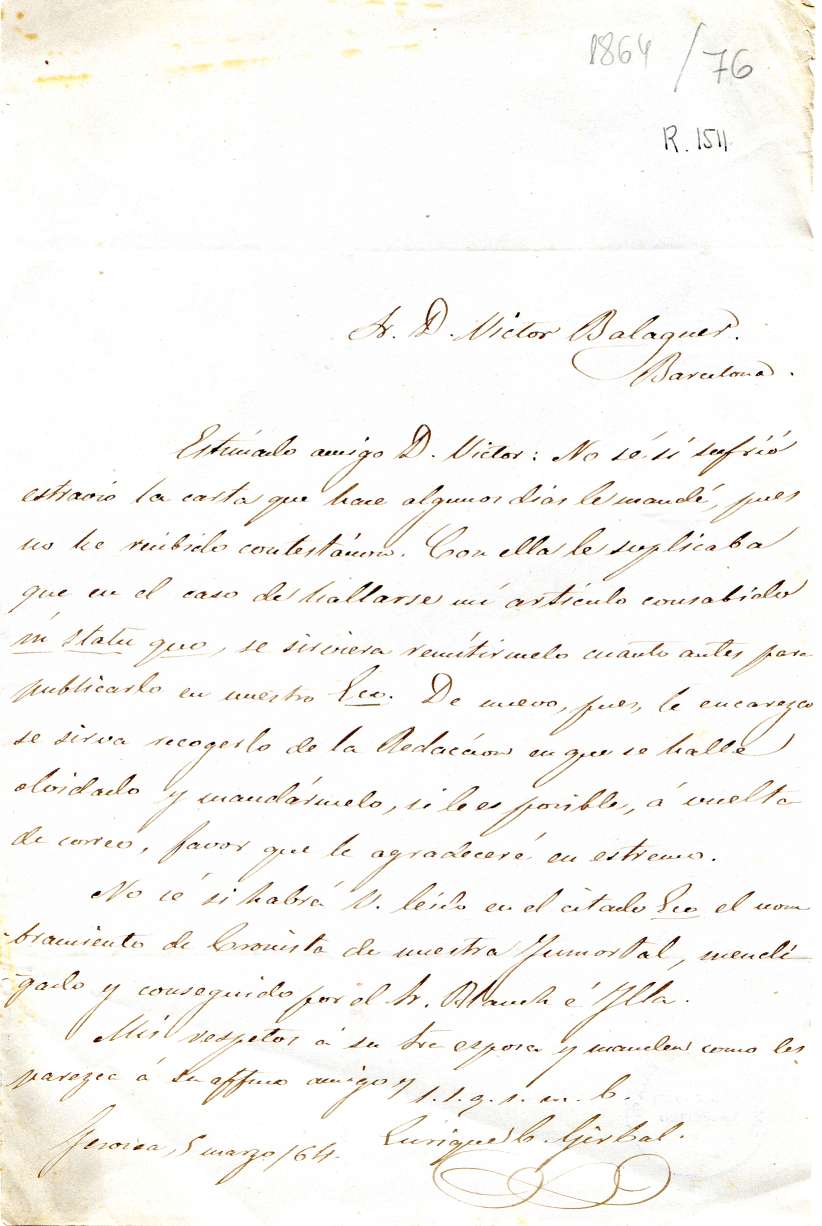 1864 / 76
R. 1511
Sr. D. Victor Balaguer.
Barcelona.
Estimado amigo D. Victor: No sé si sufrió
estravio la carta que hace algunos dias le mandé, pues
no he recibido contestacion. Con ella le suplicaba
que en el caso de hallarse mi artículo consabido
in statu quo, se sirviera remitirmelo cuanto antes para
publicarlo en nuestro Eco. De nuevo, pues, le encarezco
se sirva recogerlo de la Redaccion en que se halle
olvidado y mandármelo, si le es posible, á vuelta
de correo, favor que le agradeceré en estremo.
No sé si habrá V. leido en el citado Eco el nom
bramiento de Cronista de nuestra Inmortal, mendi
gado y conseguido por el Sr. Blanch é Illa.
Mis respetos á su Sra esposa y manden como les
parezca á su affmo amigo y s. s. q. s. m. b.
Gerona, 5 marzo/64. Enrique C. Girbal.